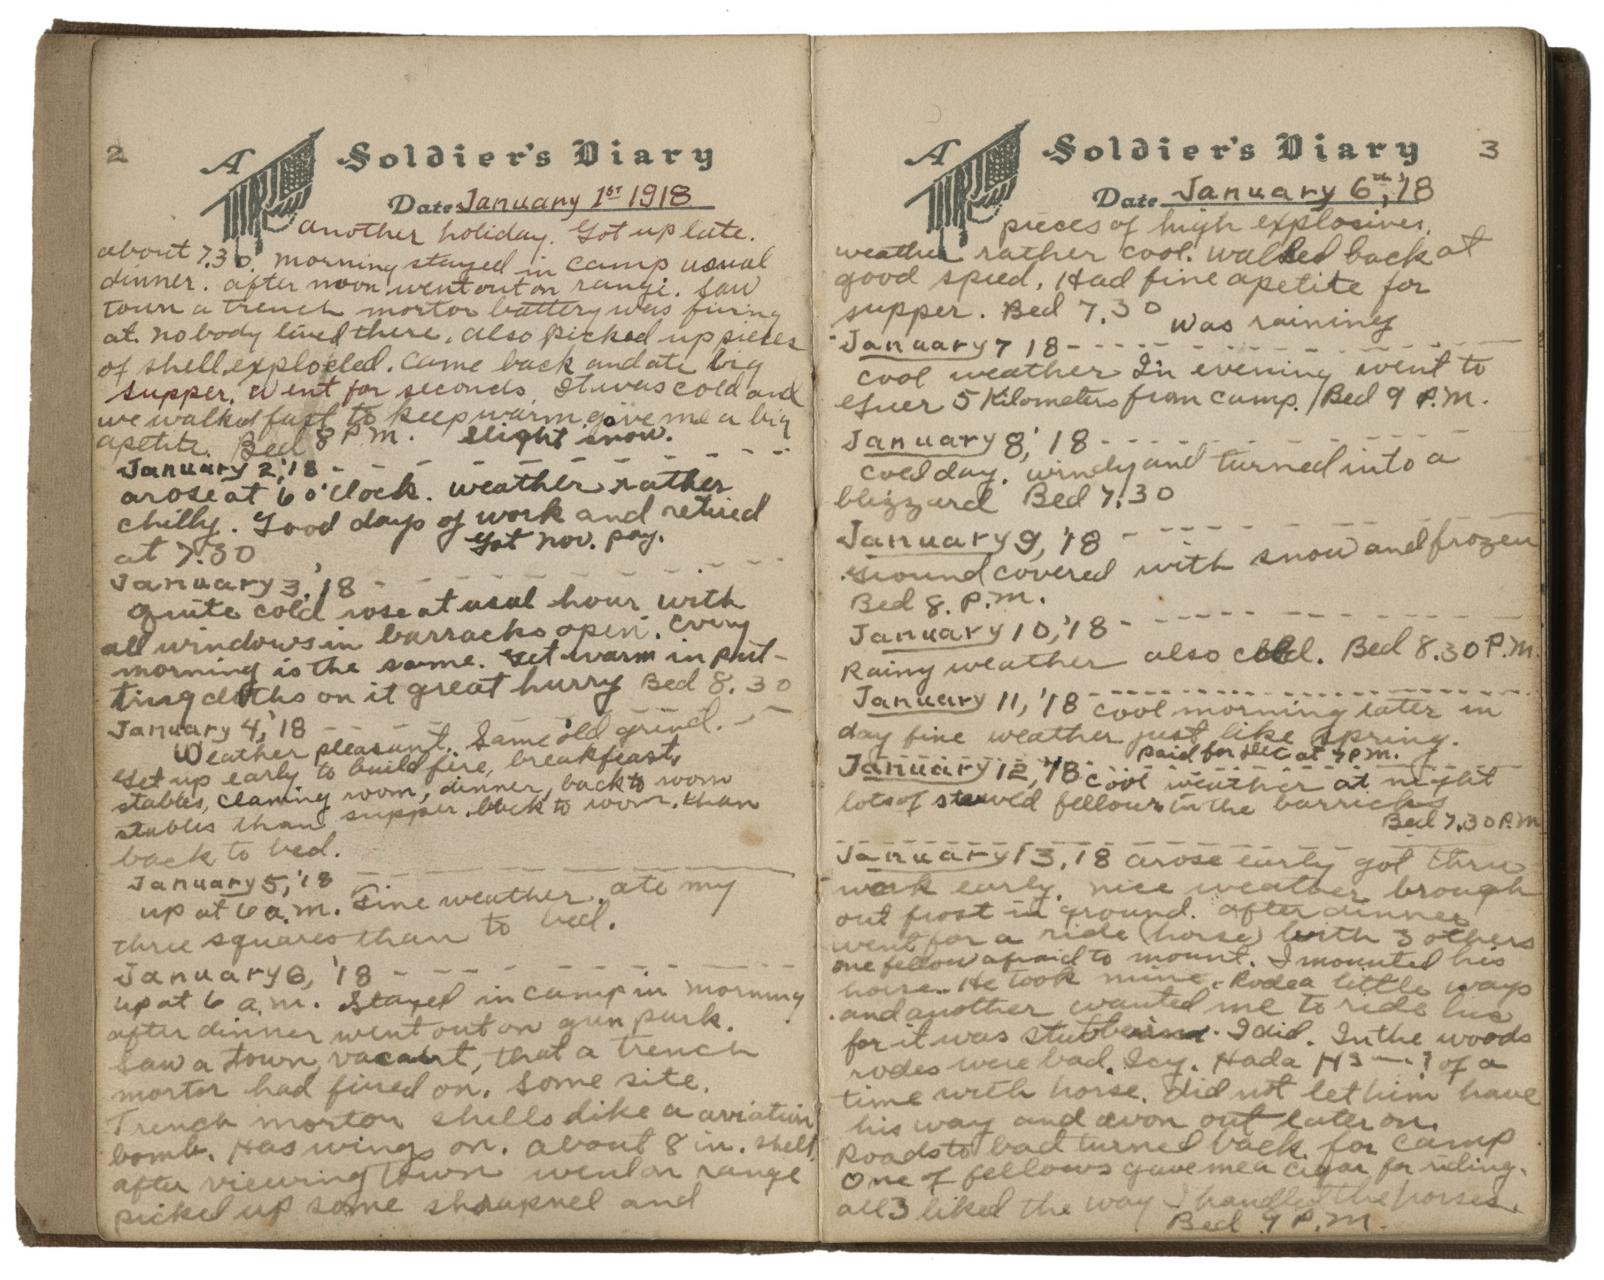 2
A Soldier's Diary
Date January 1st 1918
another holiday. Got up late.
about 7.30. morning stayed in camp usual
dinner. after noon went out on range. Saw
town a trench mortor battery was firing
at. nobody lived there, also picked up pieces
of shell exploded. came back and ate big
supper. Went for seconds. It was cold and
we walked fast to keep warm. gave me a big
apetite. Bed 8 P.M. slight snow.
January 2,'18 -
arose at 6 o'clock. weather rather
chilly. Good days of work and retired
at 7.30 Got nov. pay.
January 3,'18 -
quite cold rose at usul hour with
all windows in barracks open. Every
morning is the same. Get warm in put-
ting cloths on it great hurry Bed 8.30
January 4,'18
Weather pleasant. Same old grind.
Get up early to build fire, breakfast,
stables, claning room, dinner, back to room
stables than supper. back to room. than
back to bed.
January 5,'18
up at 6 a.m. Fine weather. ate my
three squares than to bed.
January 6, '18 -
up at 6 a.m. Stayed in camp in morning
after dinner went out on gun park.
Saw a town, vacant, that a trench
mortor had fired on. Some site.
Trench mortor shells like a aviation
bomb. Has wings on. about 8 in. shell.
after viewing town went on range
picked up some shrapnel and
3
A Soldier's Diary
Date January 6th,'18
pieces of high explosives.
weather rather cool. walked back at
good speed. Had fine apetite for
supper. Bed 7.30 was raining
January 7 18 -
cool weather In evening went to
Guer 5 Kilometers from camp. Bed 9 P.M.
January 8,'18 -
cold day. windy and turned into a
blizzard Bed 7.30
January 9,'18 -
Ground covered with snow and frozen
Bed 8. P.M.
January 10,'18 -
Rainy weather also cold. Bed 8.30 P.M.
January 11,'18 - cool morning later in
day fine weather just like spring.
paid for Dec at 4 P.M.
January 12,'18 cool weather at night
lots of stewed fellows in the barricks
Bed 7.30 P.M.
January 13,'18 arose early got thru
work early. nice weather brough
out frost in ground. after dinner
went for a ride (horse) with 3 others
one fellow afraid to mount. I mounted his
horse. He took mine. Rodea little ways
and another wanted me to ride his
for it was stubborn. I did. In the woods
rodes were bad. Icy. Had a H of a
time with horse. did not let him have
his way and won out later on.
Roads to bad turned back for camp
One of fellows gave me a cigar for riding.
all 3 liked the way I handled the horses.
Bed 9 P.M.